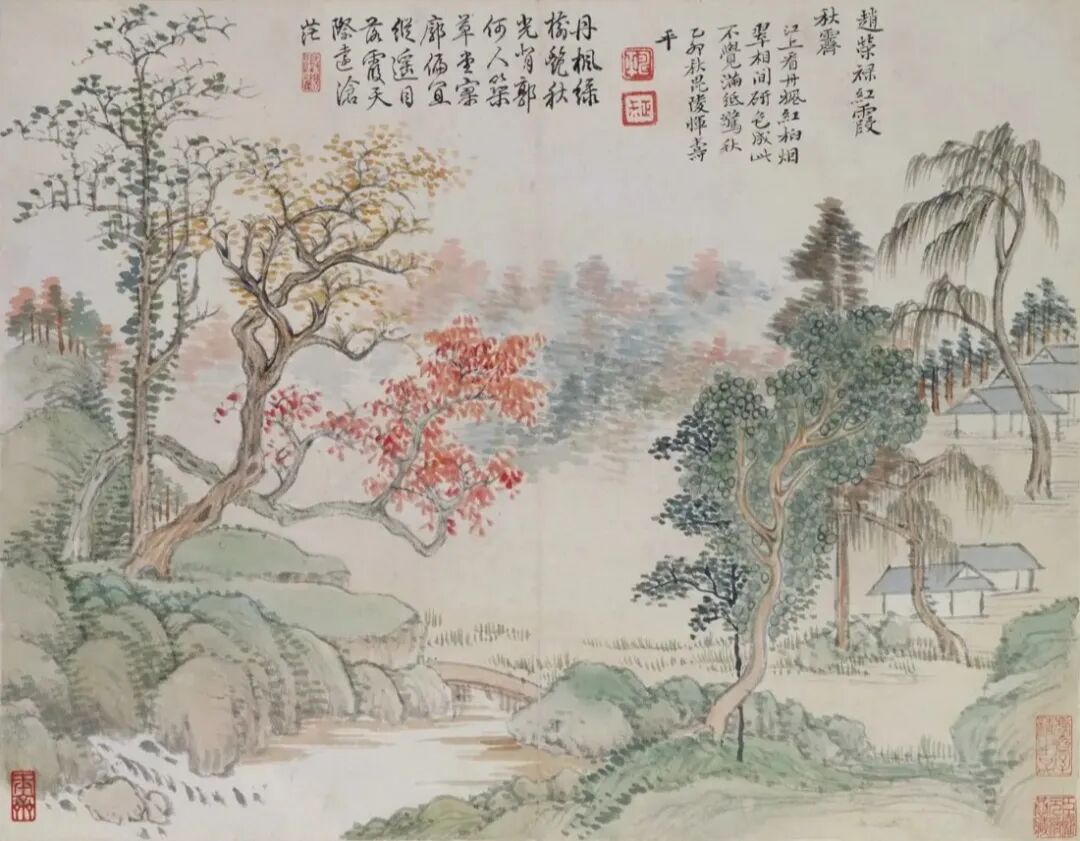 趙榮祿紅霞
秋霽
江上看丹楓紅柏烟
翠相間研色成此
不覺滿紙驚秋
乙卯秋毘陵惲壽
平
丹楓綠
秋
光背郭
何人築
草堂寥
廓偏宜
縱遙目
落霞天
際遠滄
茫